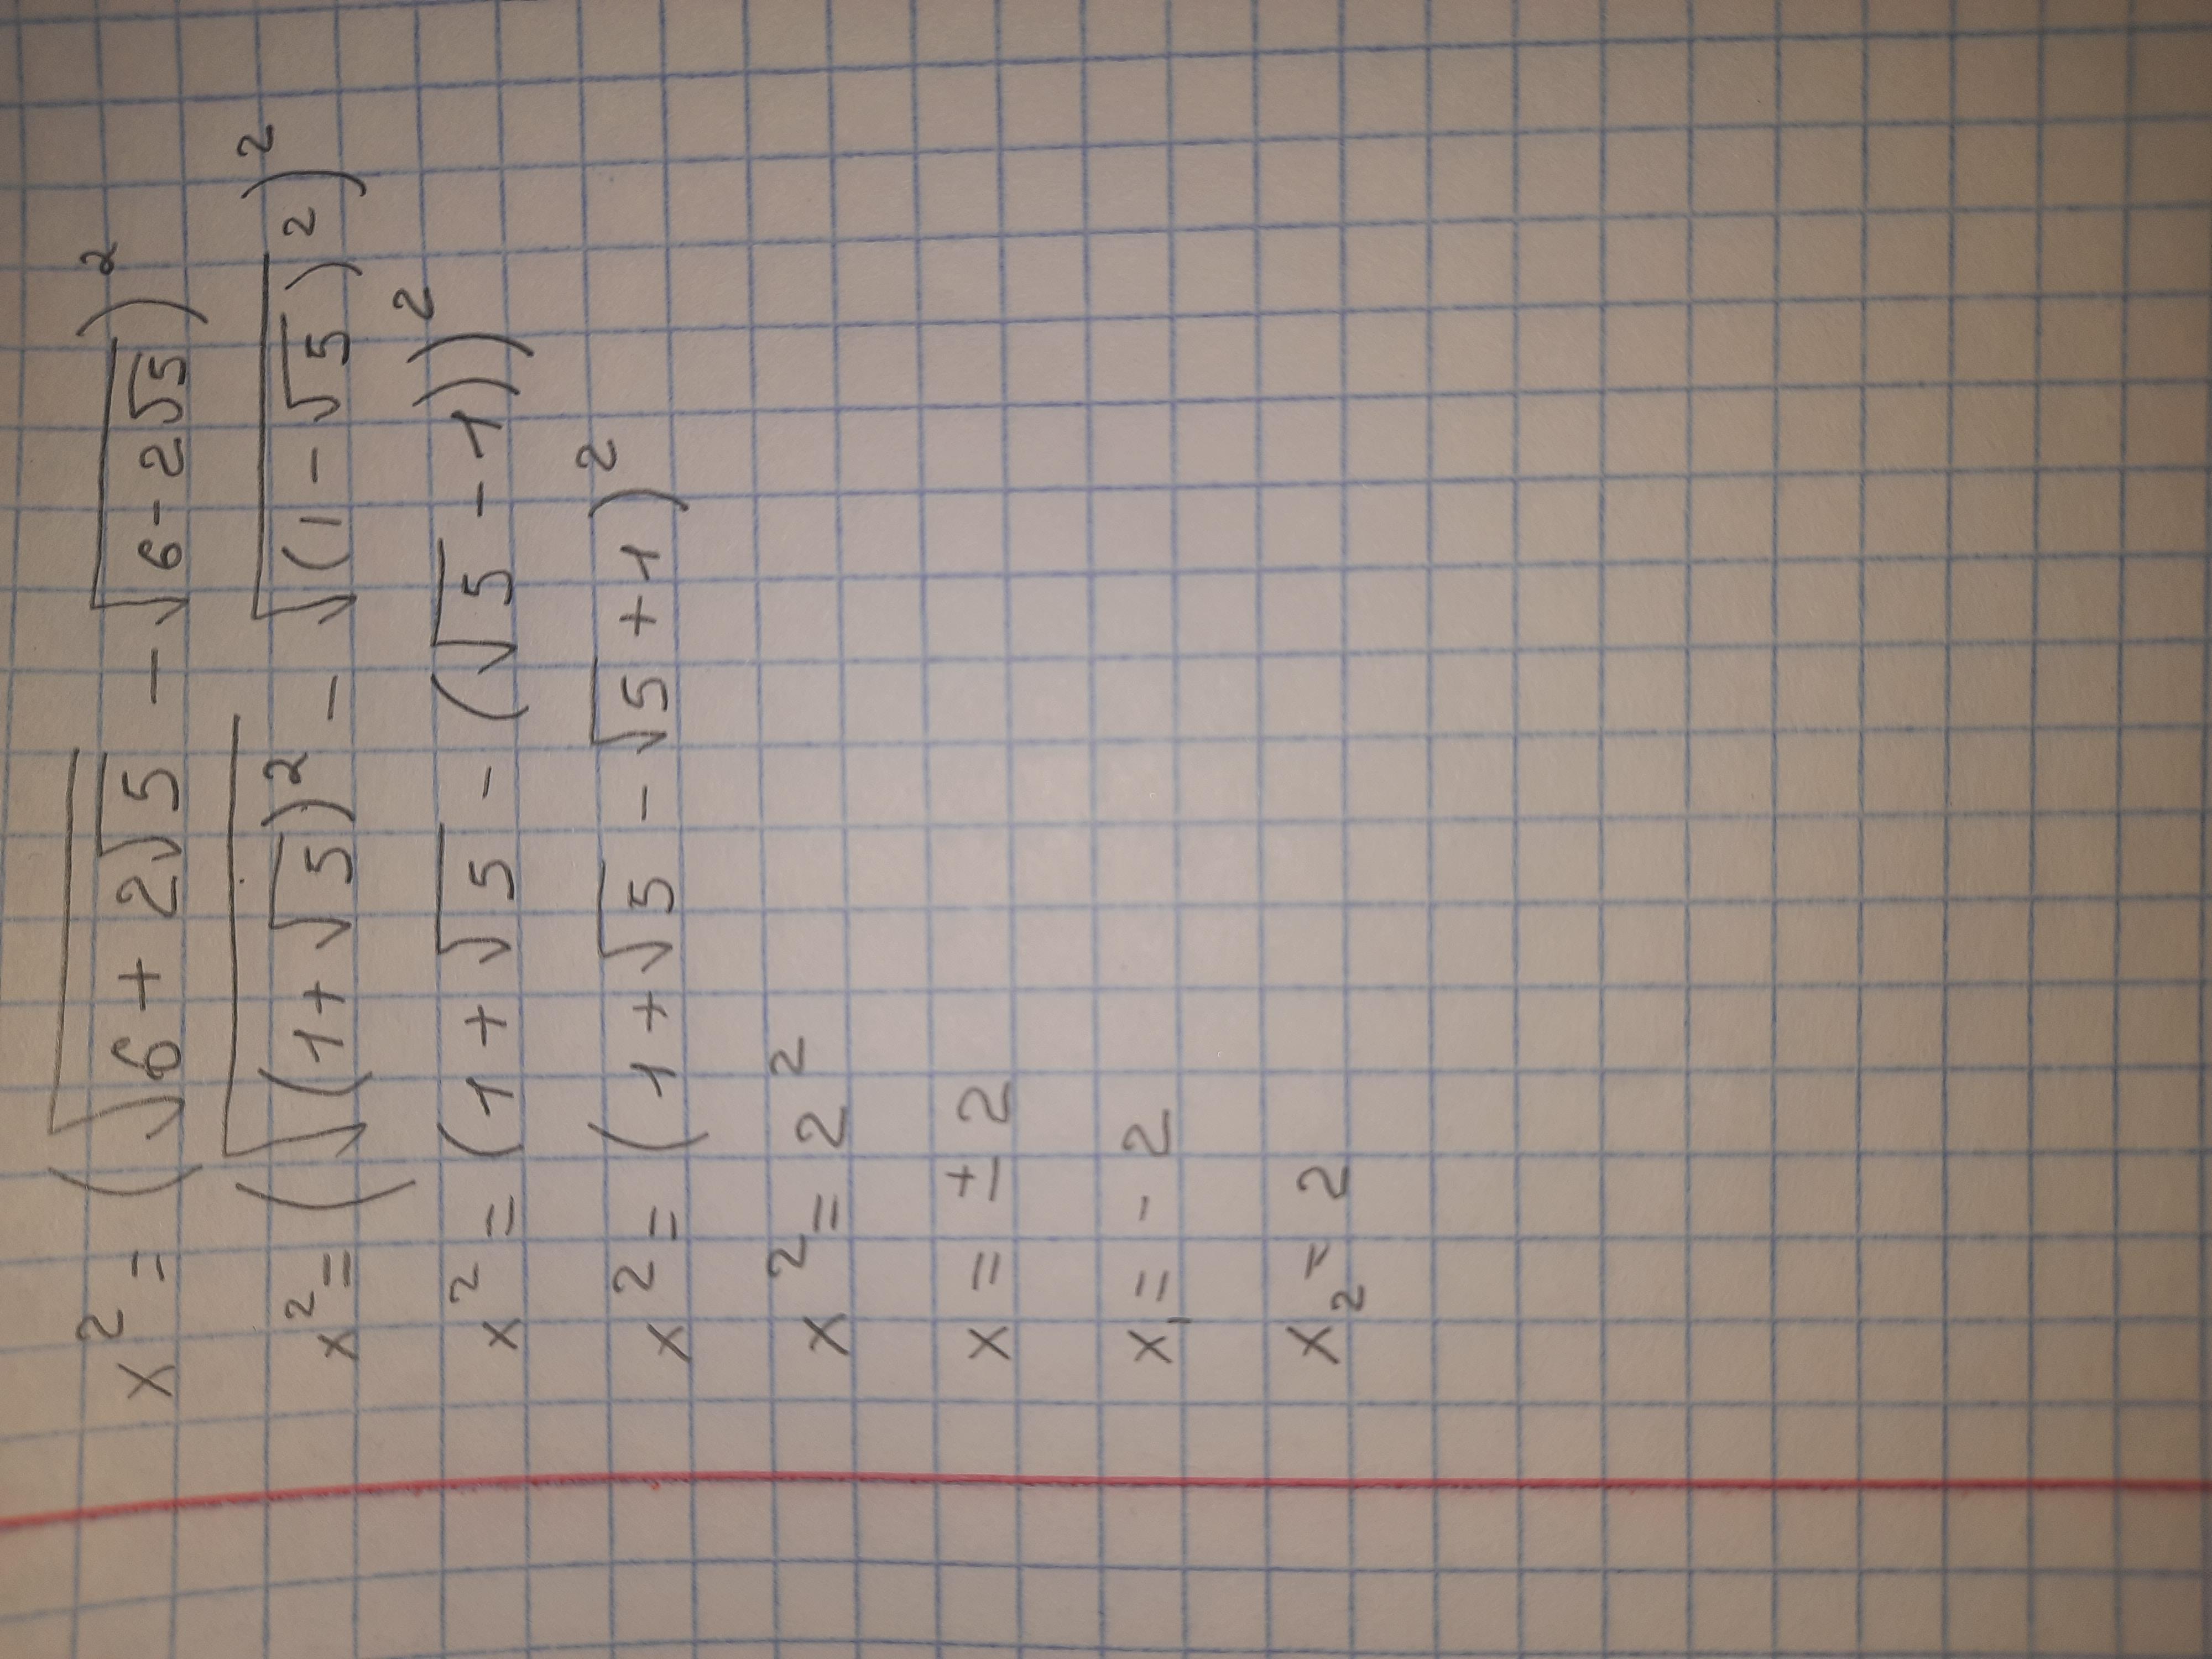 x² = (√(6 + 2√5) - √(6 - 2√5))²
x² = (√((1 + √5)²) - √((1 - √5)²))²
x² = (1 + √5 - (√5 - 1))²
x² = (1 + √5 - √5 + 1)²
x² = 2²
x = ± 2
x₁ = - 2
x₂ = 2